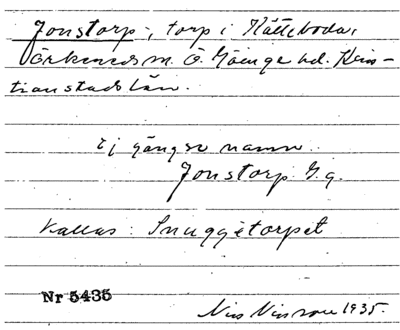 Jonstorp-, torp i Slätteboda,
Örkeneds sn. Ö. Göinge hd. Kris-
tianstads län.
Ej gängse namn.
Jonstorp
Kallas: Snuggetorpet
Nr 5435
Nils Nilsson 1935.